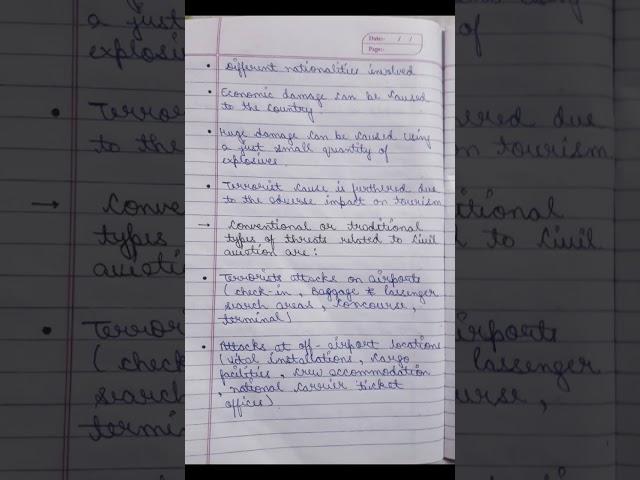 Date:- / /
Page:-
• Different nationalities involved
• Economic damage can be caused
to the country.
• Huge damage can be caused using
a just small quantity of
explosives.
• Terrorist cause is furthered due
to the adverse impact on tourism
→ Conventional or traditional
types of threats related to Civil
aviation are:
• Terrorists attacks on airports
(check-in, Baggage & Passenger
search areas, concourse,
terminal)
• Attacks at off-airport locations
(vital installations, cargo
facilities, crew accommodation
, national carrier ticket
offices)